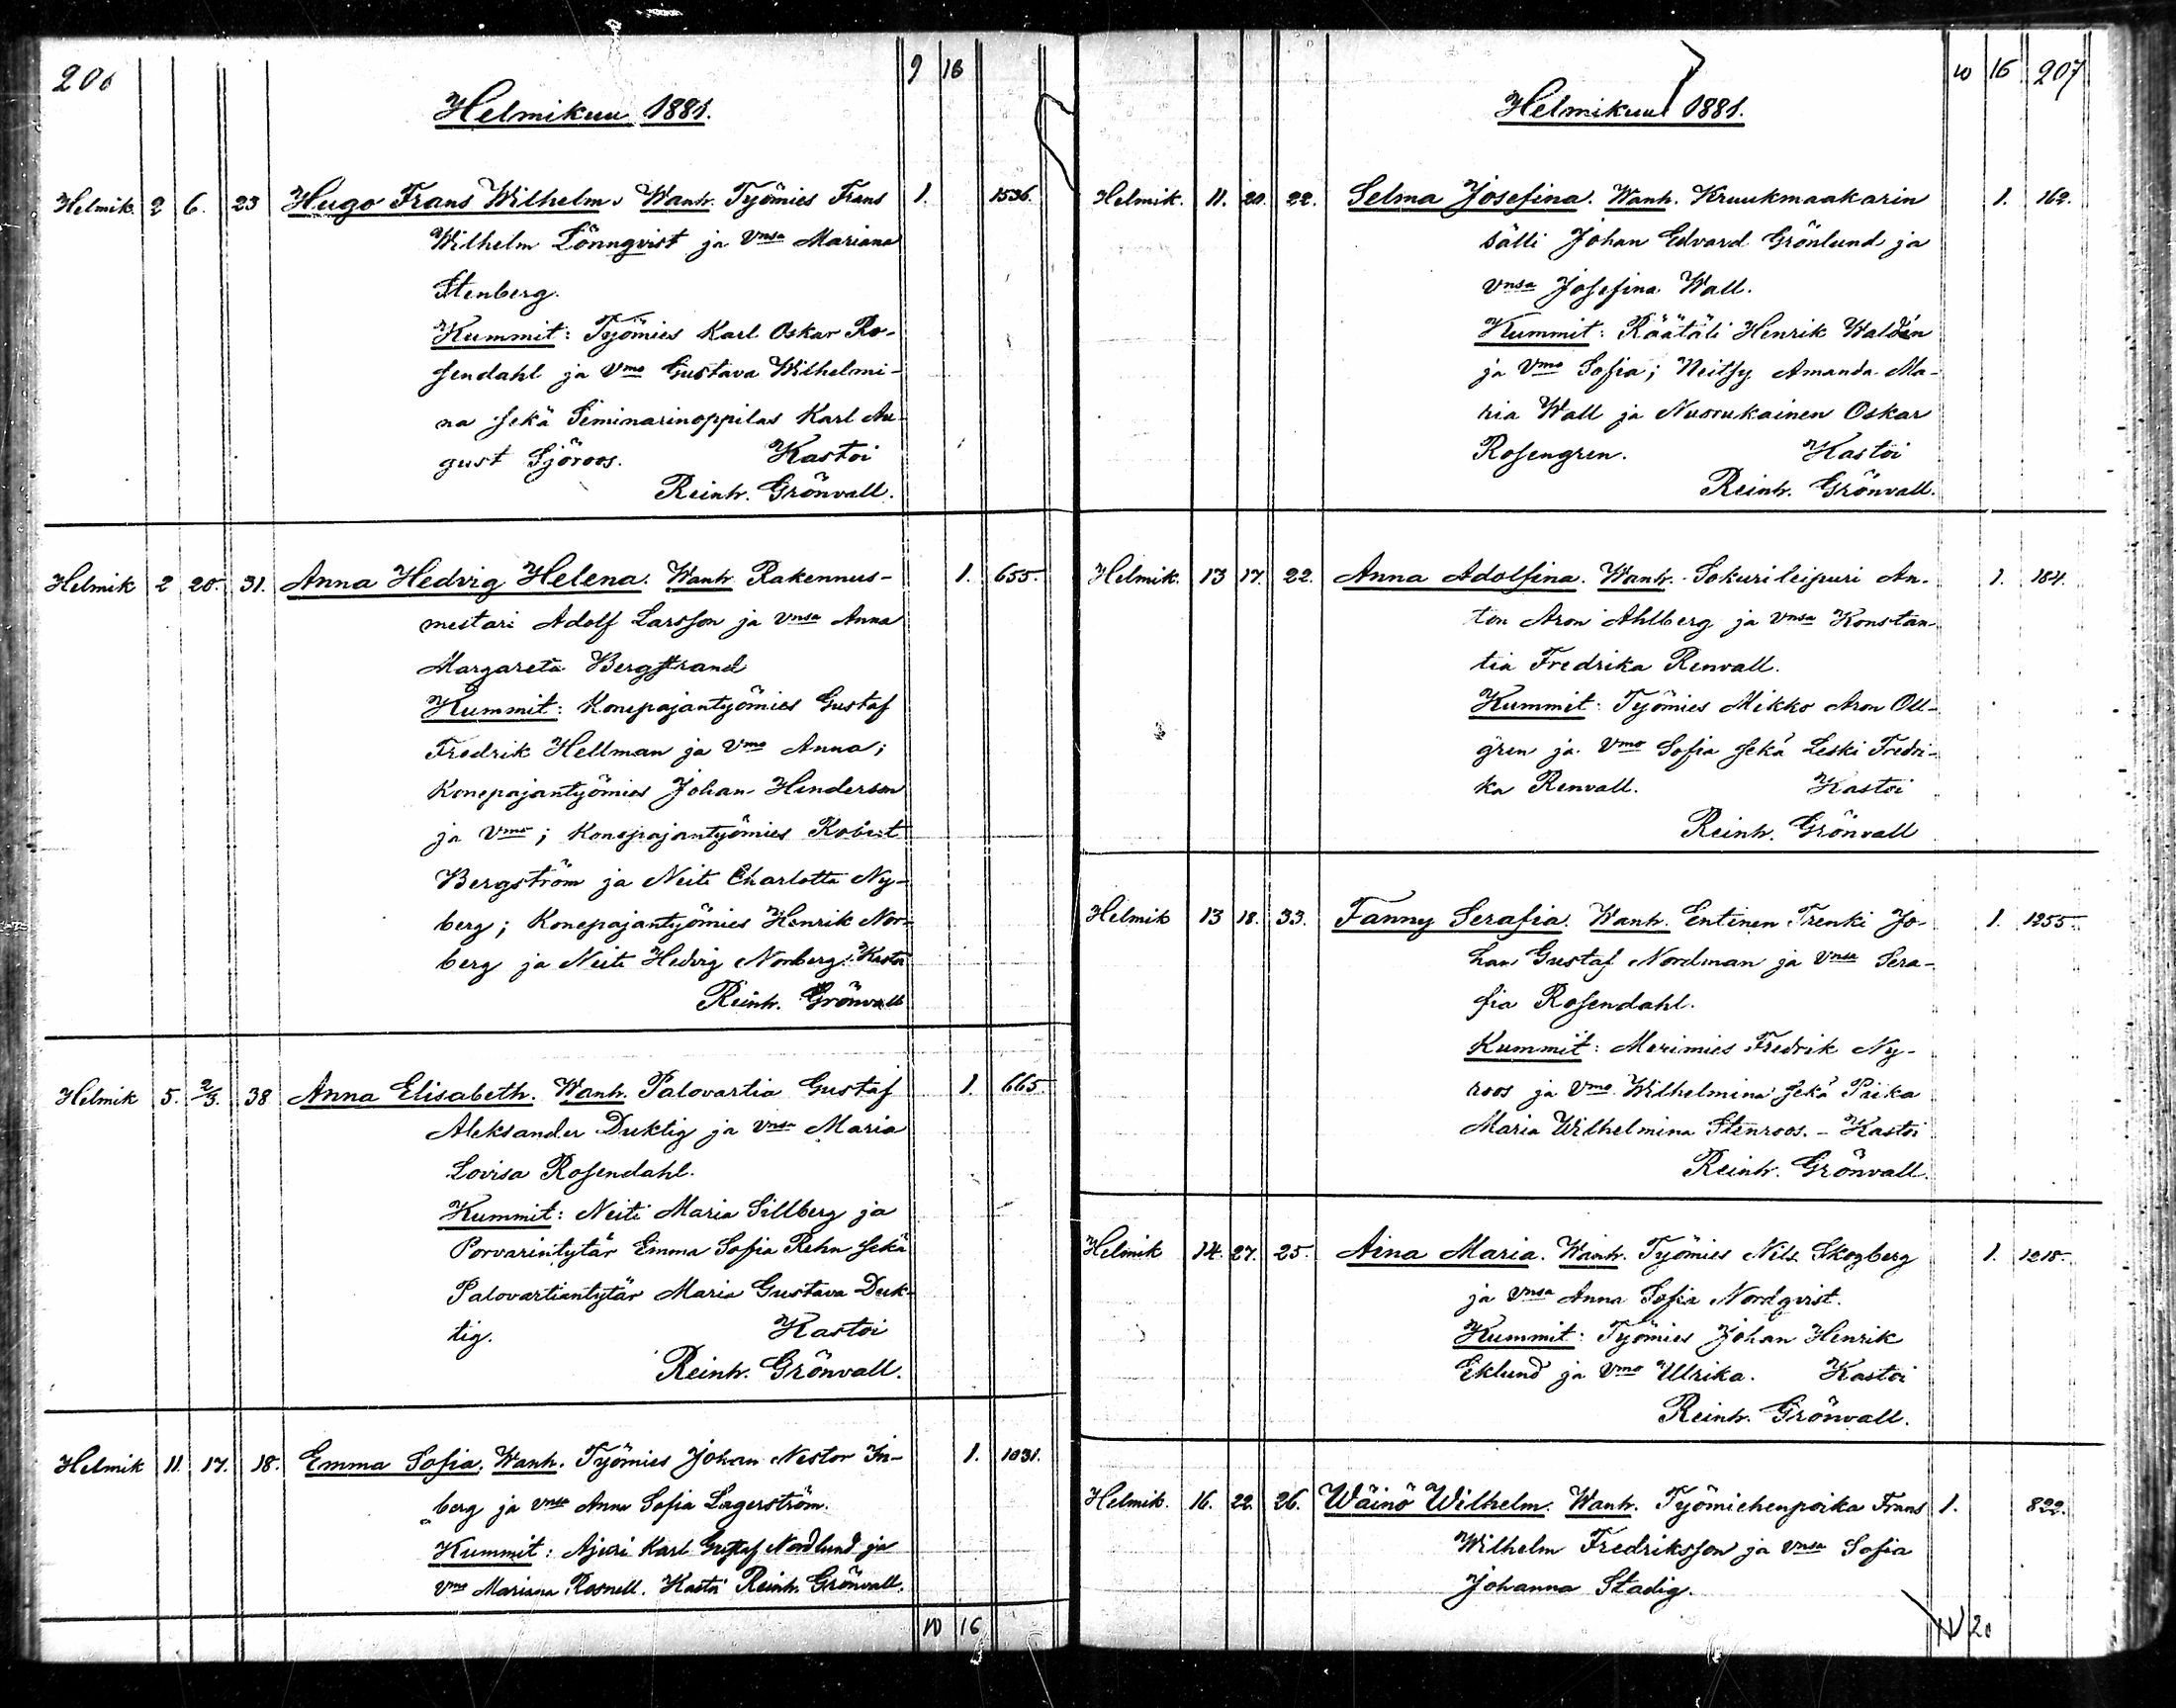 206 9 16
Helmikuu 1881.
Helmik. 2 6. 23 Hugo Frans Wilhelm. Wanh. Työmies Frans 1. 1536.
Wilhelm Lönnqvist ja Vnsa Mariana
Stenberg.
Kummit: Työmies Karl Oskar Ro-
sendahl ja Vmo Gustava Wilhelmi-
na sekä Seminarinoppilas Karl Au-
gust Sjöroos. Kastoi
Reinh. Grönvall.
Helmik 2 20. 31. Anna Hedvig Helena. Wanh. Rakennus- 1. 655.
mestari Adolf Larsson ja Vnsa Anna
Margareta Bergstrand
Kummit: Konepajantyömies Gustaf
Fredrik Hellman ja Vmo Anna;
Konepajantyömies Johan Henderson
ja Vmo; Konepajantyömies Robert
Bergström ja Neiti Charlotta Ny-
berg; Konepajantyömies Henrik Nor-
berg ja Neiti Hedvig Norberg. Kastoi
Reinh. Grönvall
Helmik 5. 2/3. 38 Anna Elisabeth. Wanh. Palovartia Gustaf 1. 665.
Aleksander Duktig ja Vnsa Maria
Lovisa Rosendahl.
Kummit: Neiti Maria Sillberg ja
Porvarintytär Emma Sofia Rehn sekä
Palovartiantytär Maria Gustava Duk-
tig. Kastoi
Reinh. Grönvall.
Helmik 11. 17. 18. Emma Sofia. Wanh. Työmies Johan Nestor In- 1. 1031.
berg ja Vnsa Anna Sofia Lagerström.
Kummit: Ajuri Karl Gustaf Nordlund ja
Vmo Mariana Kastoi Reinh. Grönvall.
10 16
10 16 207
Helmikuu 1881.
Helmik. 11. 20. 22. Selma Josefina. Wanh. Kruukmaakarin 1. 162.
sälli Johan Edvard Grönlund ja
Vnsa Josefina Wall.
Kummit: Räätäli Henrik Waldén
ja Vmo Sofia; Neitsy Amanda Ma-
ria Wall ja Nuorukainen Oskar
Rosengren. Kastoi
Reinh. Grönvall.
Helmik. 13 17. 22. Anna Adolfina. Wanh. Sokurileipuri An- 1. 184.
ton Aron Ahlberg ja Vnsa Konstan-
tia Fredrika Renvall.
Kummit: Työmies Mikko Aron Oll-
gren ja Vmo Sofia sekä Leski Fredri-
ka Renvall. Kastoi
Reinh. Grönvall
Helmik 13 18. 33. Fanny Serafia. Wanh. Entinen Trenki Jo- 1. 1255.
han Gustaf Nordman ja Vnsa Sera-
fia Rosendahl.
Kummit: Merimies Fredrik Ny-
roos ja Vmo Wilhelmina sekä Piika
Maria Wilhelmina Stenroos. - Kastoi
Reinh. Grönvall.
Helmik 14. 27. 25. Aina Maria. Wanh. Työmies Nils Skogberg 1. 1218.
ja Vnsa Anna Sofia Nordqvist.
Kummit: Työmies Johan Henrik
Eklund ja Vmo Ulrika. Kastoi
Reinh. Grönvall.
Helmik. 16. 22. 26. Wäinö Wilhelm. Wanh. Työmiehenpoika Frans 1. 822.
Wilhelm Fredriksson ja Vnsa Sofia
Johanna Stadig.
11 20